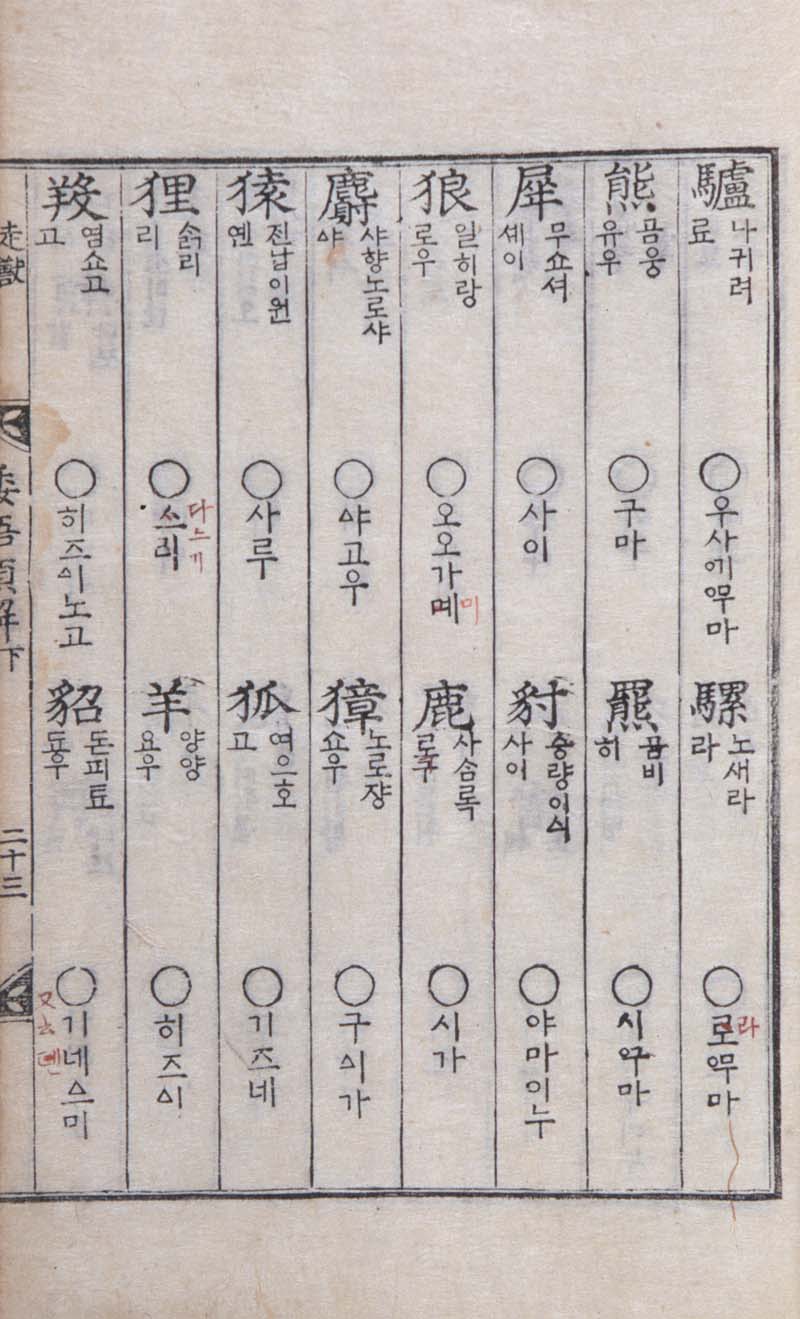 驢 나귀려 료 ○우사에ᅃᅮ마 騾 노새라 라 ○로ᅃᅮ마 라
熊 곰웅 유우 ○구마 羆 곰비 히 ○시ᅁᅮ마
犀 무쇼셔 셰이 ○사이 豺 승량이싀 사이 ○야마이누
狼 일히랑 로우 ○오오가몌 미 鹿 사슴록 로구 ○시가
麝 샤향노로샤 샤 ○쟈고우 獐 노로쟝 쇼우 ○구ᅀᅵ가
猿 진납이원 옌 ○사루 狐 여으호 고 ○기즈네
狸 슭리 리 ○쓰리 다느기 羊 양양 요우 ○히즈ᅀᅵ
羖 염쇼고 고 ○히즈ᅀᅵ노고 貂 돈피툐 됴우 ○기네ᅀᅳ미 又云
走獸 倭語類解下 二十三